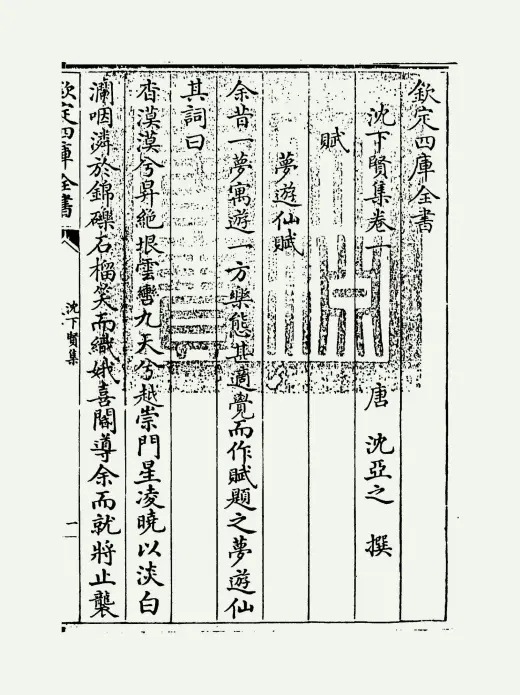 欽定四庫全書
沈下賢集卷一
唐 沈亞之 撰
賦
夢遊仙賦
余昔一夢寓遊一方樂態甚適覺而作賦題之夢遊仙
其詞曰
杳漠漠兮昇絶垠雲巒九天兮越崇門星凌曉以淡白
瀾咽潾於錦礫石榴笑而織娥喜闍導余而就將止襲
欽定四庫全書
沈下賢集
一